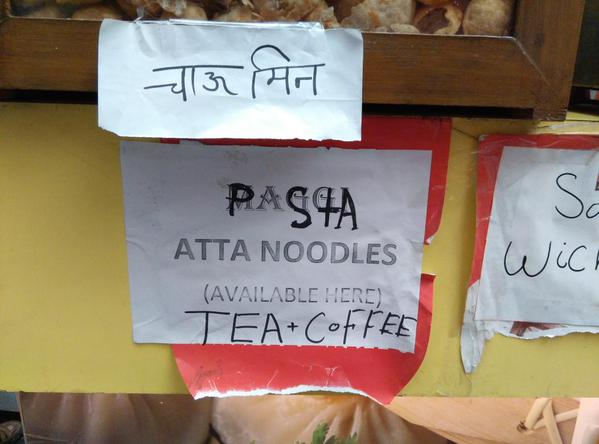 चाऊमिन
PASTA
ATTA NOODLES
(AVAILABLE HERE)
TEA + COFFEE